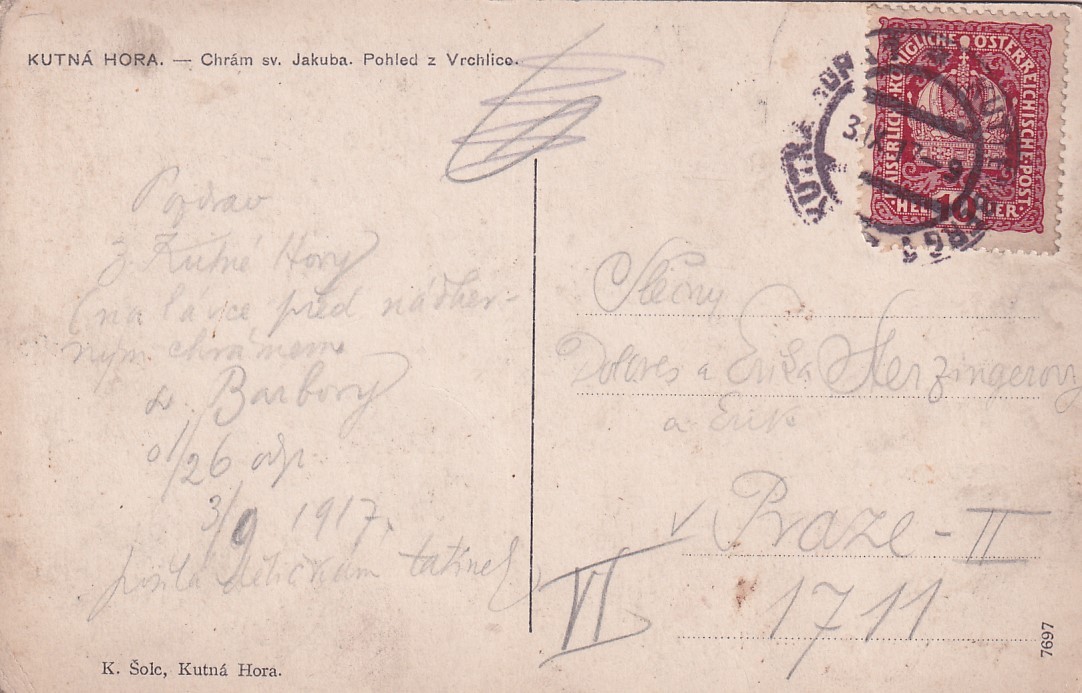 KUTNÁ HORA. — Chrám sv. Jakuba. Pohled z Vrchlice.
Pozdrav
z Kutné Hory
(na lávice před nádher-
ným chrámem
sv. Barbory
odp.
3/9 1917.
posílá dětičkám tatínek
K. Šolc, Kutná Hora.
KAISERLICHE KÖNIGLICHE ÖSTERREICHISCHE POST
10
HELLER
KUTNÁ
3.IX.17-9
Slečny
Dolores a Erika Herzingerovy
a Erik
v Praze - II
1711
VI
7697